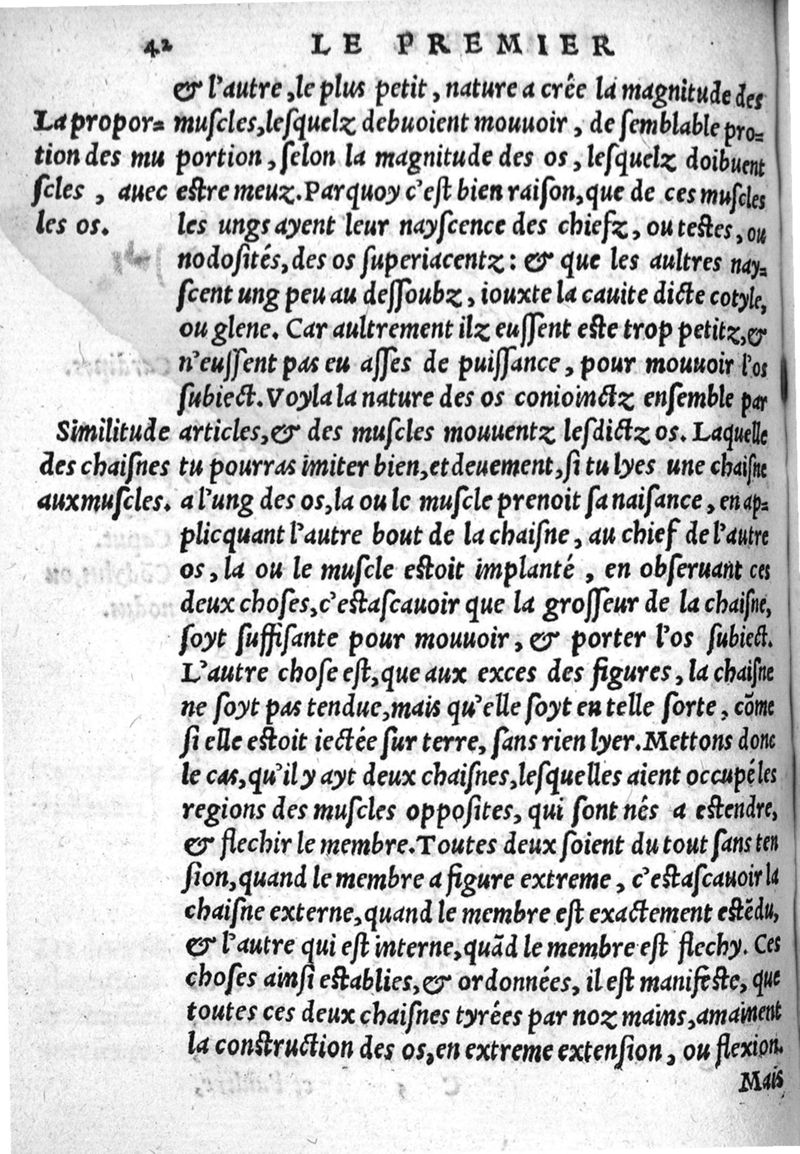 42 LE PREMIER
& l'autre, le plus petit, nature a crée la magnitude des
La propor= muſcles, leſquelz debuoient mouuoir, de ſemblable pro=
tion des mu portion, ſelon la magnitude des os, leſquelz doibuent
ſcles, auec eſtre meuz. Parquoy c'eſt bien raiſon, que de ces muſcles
les os. les ungs ayent leur nayſcence des chiefz, ou teſtes, ou
nodoſités, des os ſuperiacentz: & que les aultres nay=
ſcent ung peu au deſſoubz, iouxte la cauite dicte cotyle,
ou glene. Car aultrement ilz euſſent eſte trop petitz, &
n'euſſent pas eu aſſes de puiſſance, pour mouuoir l'os
ſubiect. Voyla la nature des os conioinctz enſemble par
Similitude articles, & des muſcles mouuentz leſdictz os. Laquelle
des chaiſnes tu pourras imiter bien, et deuement, ſi tu lyes une chaiſne
aux muſcles. a l'ung des os, la ou le muſcle prenoit ſa naiſance, en ap=
plicquant l'autre bout de la chaiſne, au chief de l'autre
os, la ou le muſcle eſtoit implanté, en obſeruant ces
deux choſes, c'eſtaſcauoir que la groſſeur de la chaiſne,
ſoyt ſuffiſante pour mouuoir, & porter l'os ſubiect.
L'autre choſe eſt, que aux exces des figures, la chaiſne
ne ſoyt pas tendue, mais qu'elle ſoyt en telle ſorte, cõme
ſi elle eſtoit iectée ſur terre, ſans rien lyer. Mettons donc
le cas, qu'il y ayt deux chaiſnes, leſquelles aient occupé les
regions des muſcles oppoſites, qui ſont nés a eſtendre,
& flechir le membre. Toutes deux ſoient du tout ſans ten
ſion, quand le membre a figure extreme, c'eſtaſcauoir la
chaiſne externe, quand le membre eſt exactement eſtẽdu,
& l'autre qui eſt interne, quãd le membre eſt flechy. Ces
choſes ainſi eſtablies, & ordonnées, il eſt manifeſte, que
toutes ces deux chaiſnes tyrées par noz mains, amainent
la conſtruction des os, en extreme extenſion, ou flexion.
Mais